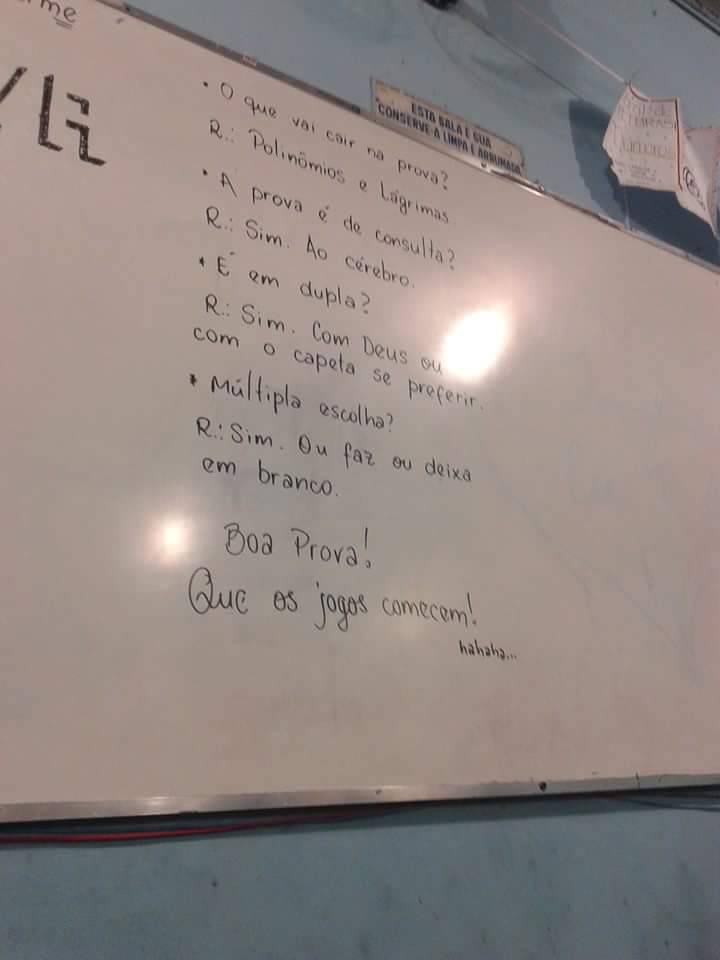 • O que vai cair na prova?
R.: Polinômios e Lágrimas
• A prova é de consulta?
R.: Sim. Ao cérebro.
• É em dupla?
R.: Sim. Com Deus ou
com o capeta se preferir.
• Múltipla escolha?
R.: Sim. Ou faz ou deixa
em branco.
Boa Prova!
Que os jogos comecem!
hahaha...
ESTA SALA É SUA
CONSERVE-A LIMPA E ARRUMADA